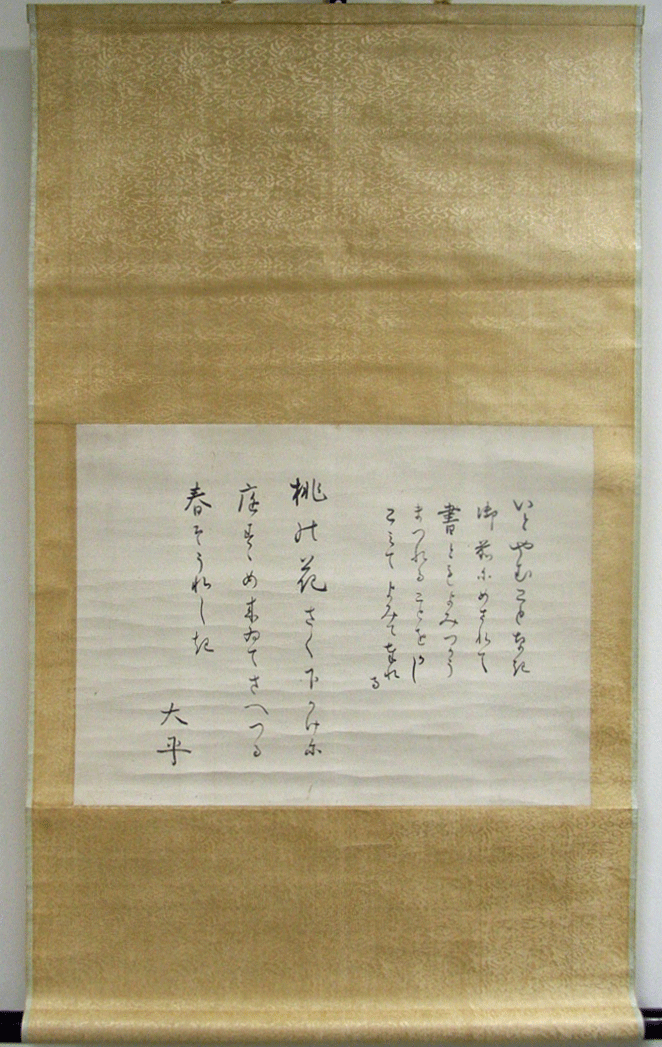 いとやむことなき
御前にめされて
書ともよみつかう
まつれることをかし
こみてよみてたれ
る
桃の花さく下かけに
庭すゝめ来ゐてさへつる
春そうれしき
大平